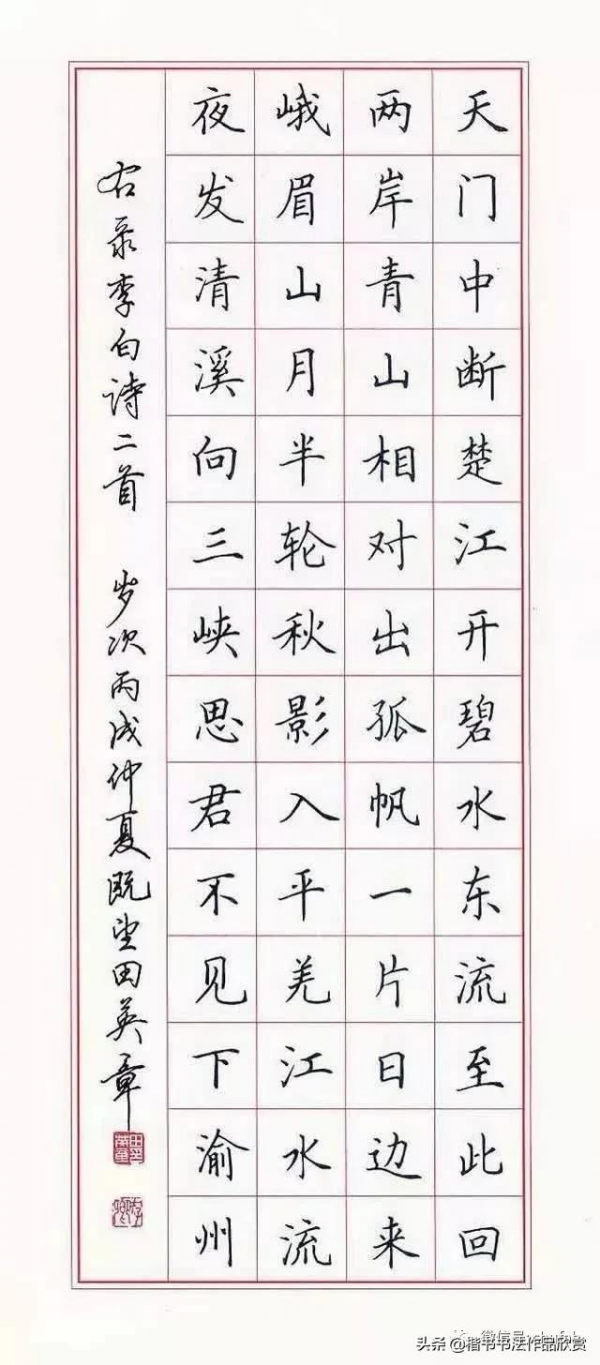 天门中断楚江开碧水东流至此回
两岸青山相对出孤帆一片日边来
峨眉山月半轮秋影入平羌江水流
夜发清溪向三峡思君不见下渝州
右录李白诗二首 岁次丙戌仲夏既望田英章
头条@楷书书法作品欣赏